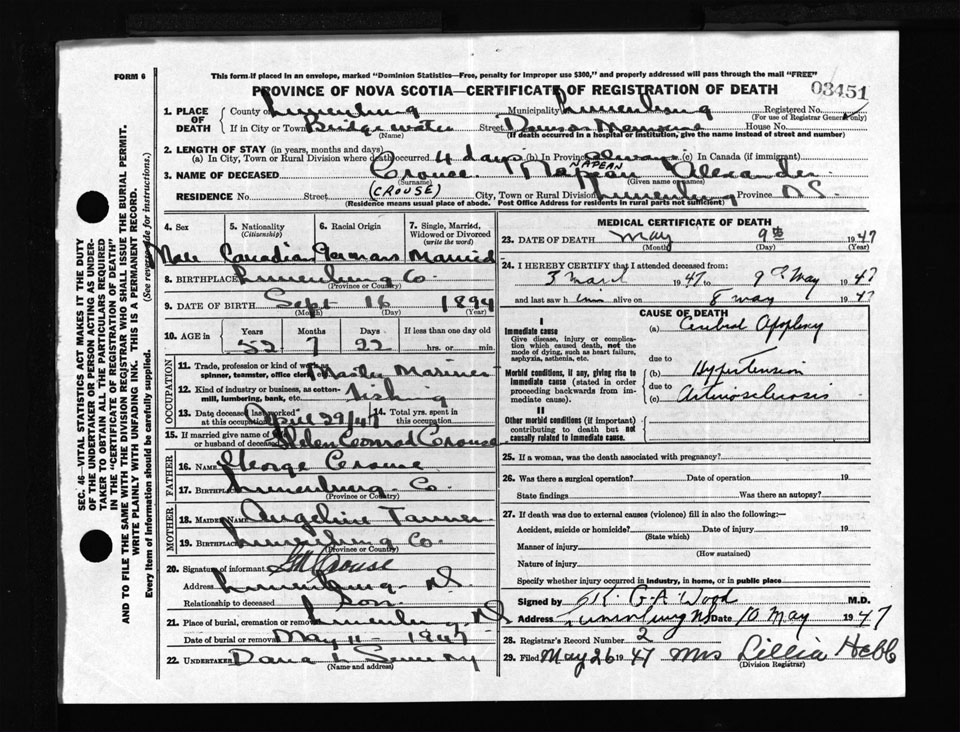 FORM 6
This form if placed in an envelope, marked "Dominion Statistics—Free, penalty for improper use $300," and properly addressed will pass through the mail "FREE"
PROVINCE OF NOVA SCOTIA—CERTIFICATE OF REGISTRATION OF DEATH
03451
1. PLACE OF DEATH
County of Lunenburg Municipality Lunenburg Registered No.
(For use of Registrar General only)
If in City or Town Bridgewater Street Dawson Memorial House No.
(Name) (If death occurred in a hospital or institution, give the name instead of street and number)
2. LENGTH OF STAY (in years, months and days)
(a) In City, Town or Rural Division where death occurred 4 days (b) In Province always (c) In Canada (if immigrant)
NAPEAN
3. NAME OF DECEASED Crouse Napean Alexander
(Surname) (Given name or names)
(CROUSE)
RESIDENCE No. Street City, Town or Rural Division Lunenburg Province N.S.
(Residence means usual place of abode. Post Office Address for residents in rural parts not sufficient)
4. Sex 5. Nationality (Citizenship) 6. Racial Origin 7. Single, Married, Widowed or Divorced (write the word)
Male Canadian German Married
8. BIRTHPLACE Lunenburg Co.
(Province or Country)
9. DATE OF BIRTH Sept 16 1894
(Month) (Day) (Year)
10. AGE in Years Months Days If less than one day old
52 7 22 hrs. or min.
OCCUPATION
11. Trade, profession or kind of work as spinner, teamster, office clerk, etc. Master Mariner
12. Kind of industry or business, as cotton-mill, lumbering, bank, etc. Fishing
13. Date deceased last worked at this occupation April 29/47 14. Total yrs. spent in this occupation
15. If married give name of wife or husband of deceased Helen Conrad Crouse
FATHER
16. NAME George Crouse
17. BIRTHPLACE Lunenburg Co.
(Province or Country)
MOTHER
18. MAIDEN NAME Angeline Tanner
19. BIRTHPLACE Lunenburg Co
(Province or Country)
20. Signature of informant G M Crouse
Address Lunenburg N.S.
Relationship to deceased Son
21. Place of burial, cremation or removal Lunenburg N.S.
Date of burial or removal May 11 - 1947
22. UNDERTAKER Dana L Sweeny
(Name and address)
MEDICAL CERTIFICATE OF DEATH
23. DATE OF DEATH May 9th 1947
(Month) (Day) (Year)
24. I HEREBY CERTIFY that I attended deceased from:
3 March 1947 to 9th May 1947
and last saw him alive on 8 May 1947
CAUSE OF DEATH
I
Immediate cause
Give disease, injury or complication which caused death, not the mode of dying, such as heart failure, asphyxia, asthenia, etc.
(a) Cerebral Apoplexy
due to
Morbid conditions, if any, giving rise to immediate cause (stated in order proceeding backwards from immediate cause).
(b) Hypertension
due to
(c) Arteriosclerosis
II
Other morbid conditions (if important) contributing to death but not causally related to immediate cause.
25. If a woman, was the death associated with pregnancy?
26. Was there a surgical operation? Date of operation 19
State findings Was there an autopsy?
27. If death was due to external causes (violence) fill in also the following:—
Accident, suicide or homicide? Date of injury 19
(State which)
Manner of injury
(How sustained)
Nature of injury
Specify whether injury occurred in industry, in home, or in public place
Signed by G A Wood M.D.
Address Lunenburg NS Date 10 May 1947
28. Registrar's Record Number 2
29. Filed May 26 1947 Mrs Lillia Hebb
(Division Registrar)
SEC. 46—VITAL STATISTICS ACT MAKES IT THE DUTY
OF THE UNDERTAKER OR PERSON ACTING AS UNDER-
TAKER TO OBTAIN ALL THE PARTICULARS REQUIRED
IN THE "CERTIFICATE OF REGISTRATION OF DEATH"
AND TO FILE THE SAME WITH THE DIVISION REGISTRAR WHO SHALL ISSUE THE BURIAL PERMIT.
WRITE PLAINLY WITH UNFADING INK. THIS IS A PERMANENT RECORD.
Every item of information should be carefully supplied. (See reverse side for instructions.)